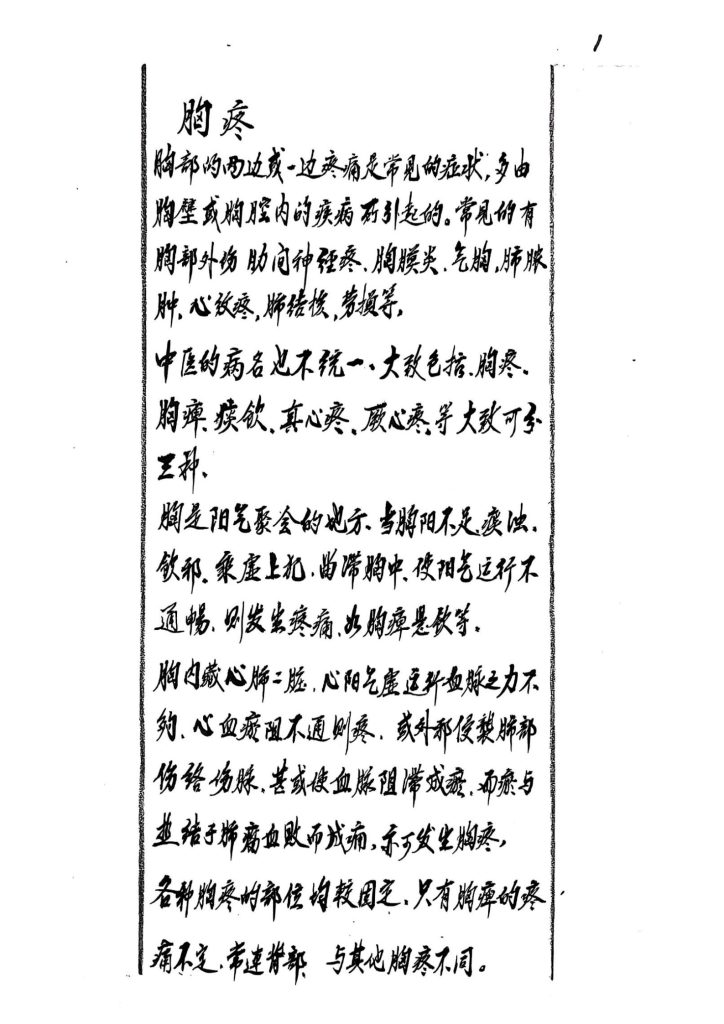 1
胸疼
胸部的两边或一边疼痛是常见的症状,多由
胸壁或胸腔内的疾病所引起的。常见的有
胸部外伤 肋间神经疼、胸膜炎、气胸,肺脓
肿,心绞疼,肺结核,劳损等,
中医的病名也不统一、大致包括、胸疼、
胸痹、痰饮、真心疼、厥心疼、等大致可分
三种、
胸是阳气聚会的地方、当胸阳不足,痰浊、
饮邪、乘虚上犯、留滞胸中、使阳气运行不
通畅、则发生疼痛、如胸痹悬饮等、
胸内藏心肺二脏、心阳气虚运行血脉之力不
够、心血瘀阻不通则疼、或外邪侵袭肺部
伤络伤脉、甚或使血脉阻滞成瘀、而瘀与
结于肺 血败而成痈、亦可发生胸疼,
各种胸疼的部位均较固定、只有胸痹的疼
痛不定、常连背部、与其他胸疼不同。